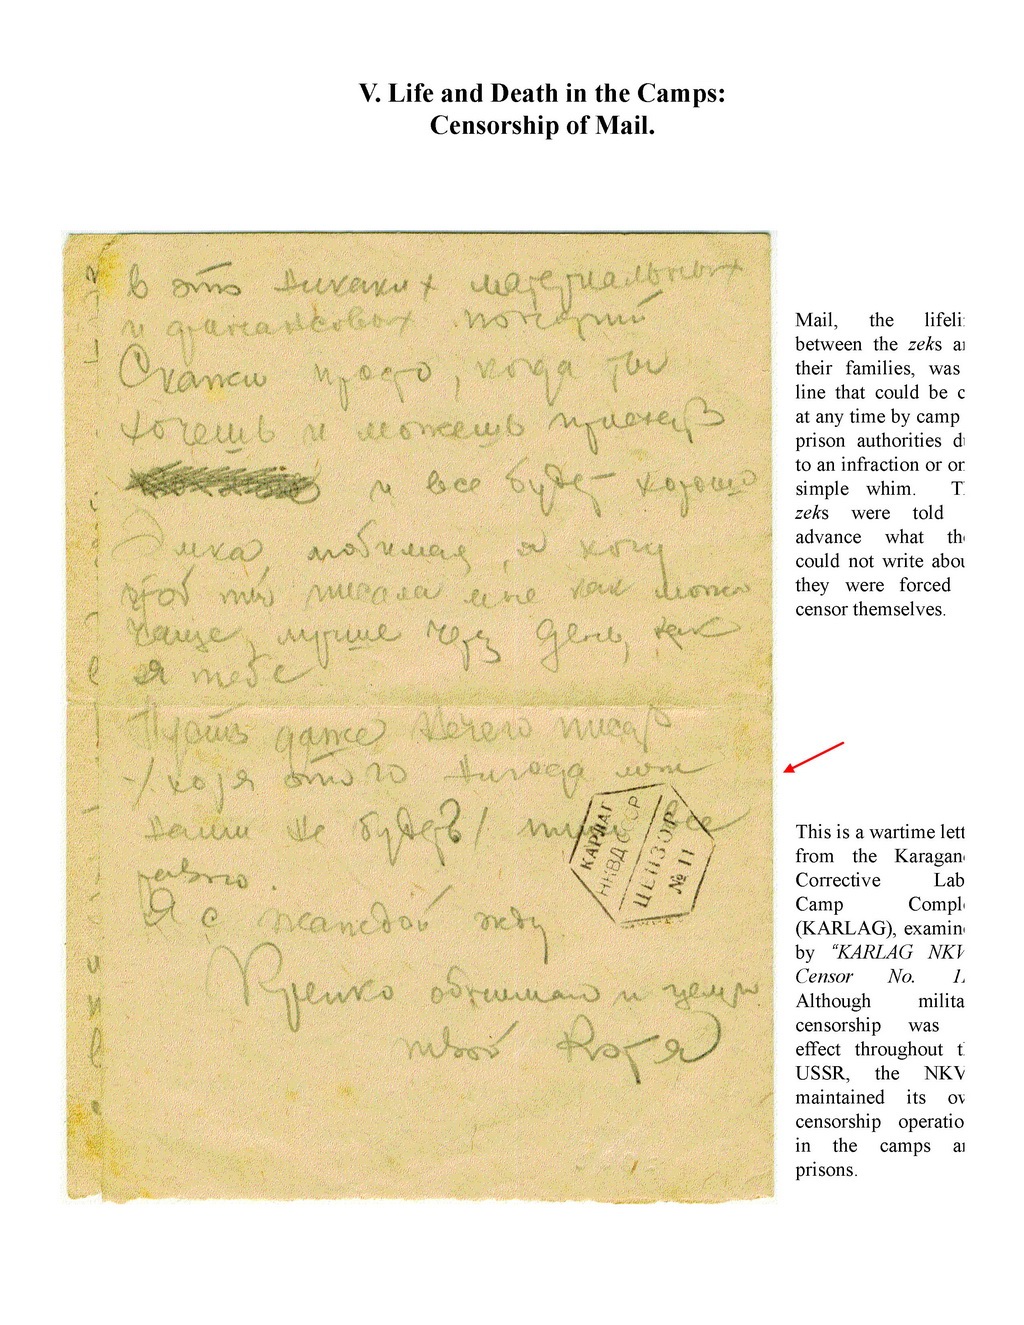 V. Life and Death in the Camps:
Censorship of Mail.
в это никаких материальных
и финансовых
Скажи просто, когда ты
хочешь и можешь приехать
и все будет хорошо
Эмка любимая, я хочу
чтоб ты писала мне как можно
чаще, лучше через день, как
я тебе
Пусть даже нечего писать
/хотя этого никогда меж
нами не будет/ пиши все
равно.
Я с жаждой жду
Крепко обнимаю и целую
твой Котя
КАРЛАГ
НКВД СССР
ЦЕНЗОР
№ 11
Mail, the lifeli
between the zeks a
their families, was
line that could be c
at any time by camp
prison authorities d
to an infraction or o
simple whim. T
zeks were told
advance what th
could not write abou
they were forced
censor themselves.
This is a wartime lett
from the Karagan
Corrective Lab
Camp Compl
(KARLAG), examin
by “KARLAG NKV
Censor No. 1
Although milita
censorship was
effect throughout t
USSR, the NKV
maintained its ow
censorship operatio
in the camps a
prisons.